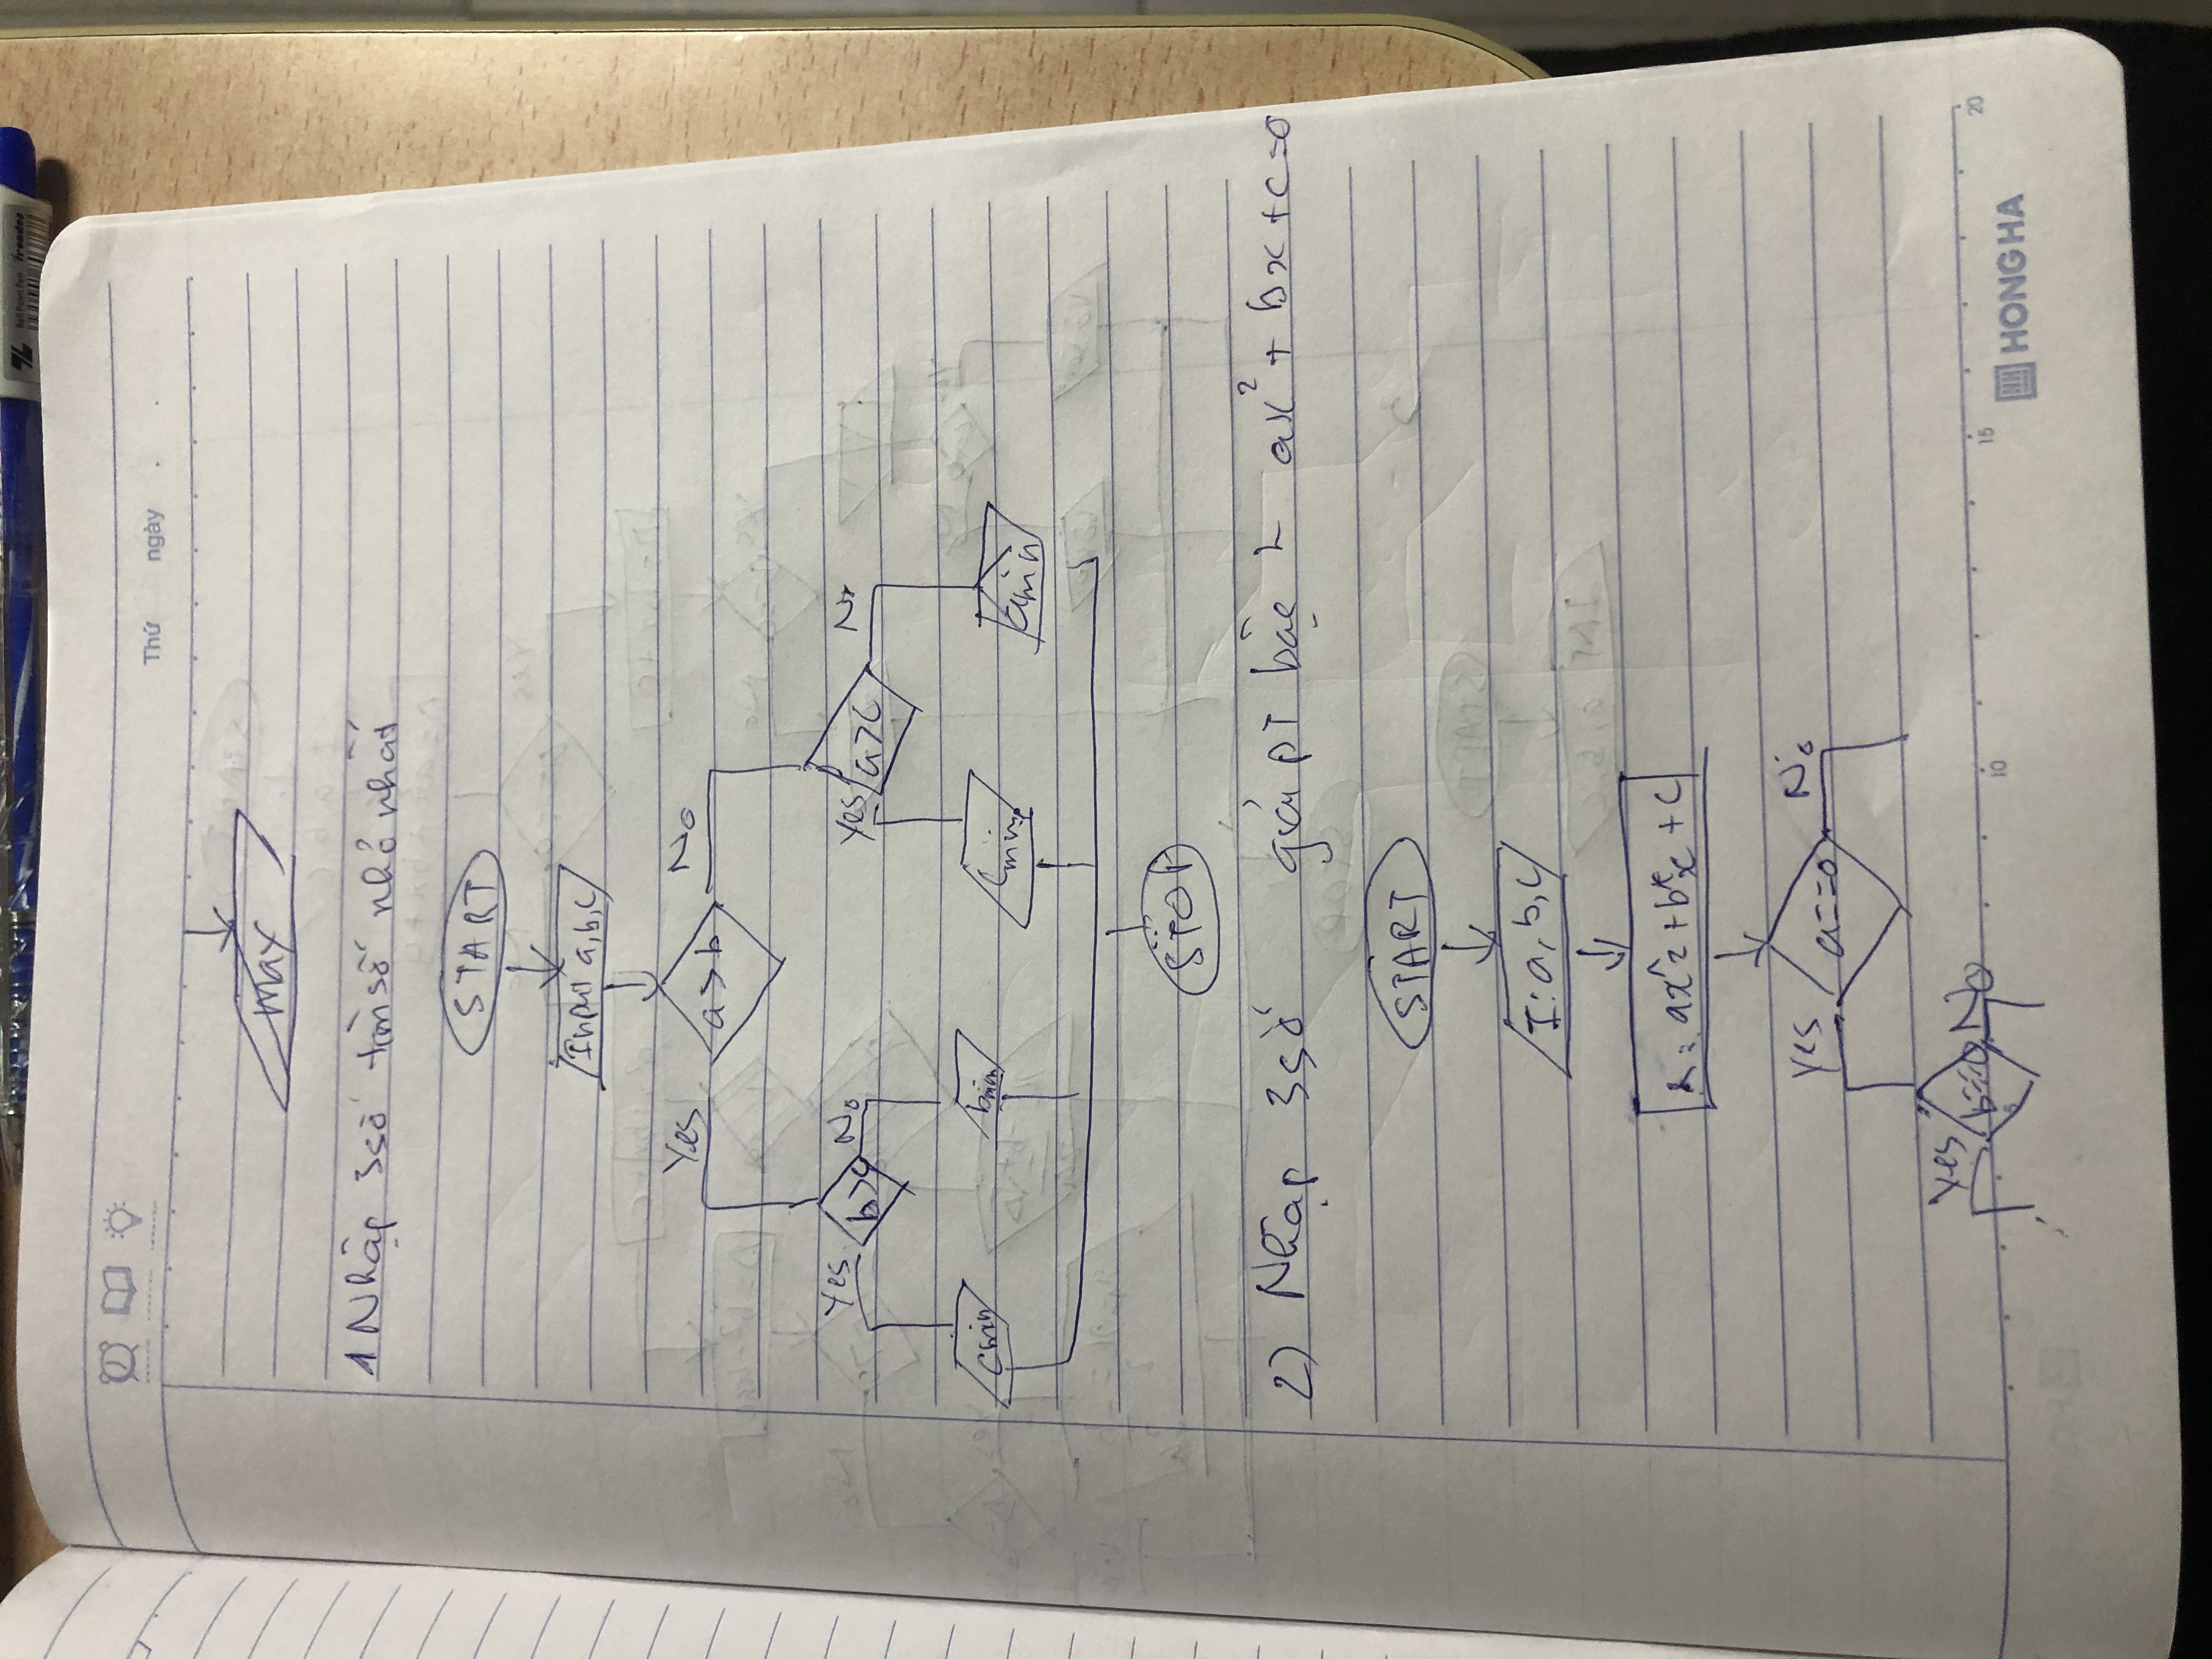 Ball Point Pen Trendee
Thứ ngày . .
max
1 Nhập 3 số tìm số nhỏ nhất
START
Input a,b,c
Yes a > b No
Yes b>c No Yes a>c No
cmin bmin cmin amin
STOP
2) Nhập 3 số giải pT bậc 2 ax² + bx + c = 0
START
I: a, b, c
ax^2 + b*x + c
Yes a==0 No
Yes b==0 No
5 10 15 20
HONG HA